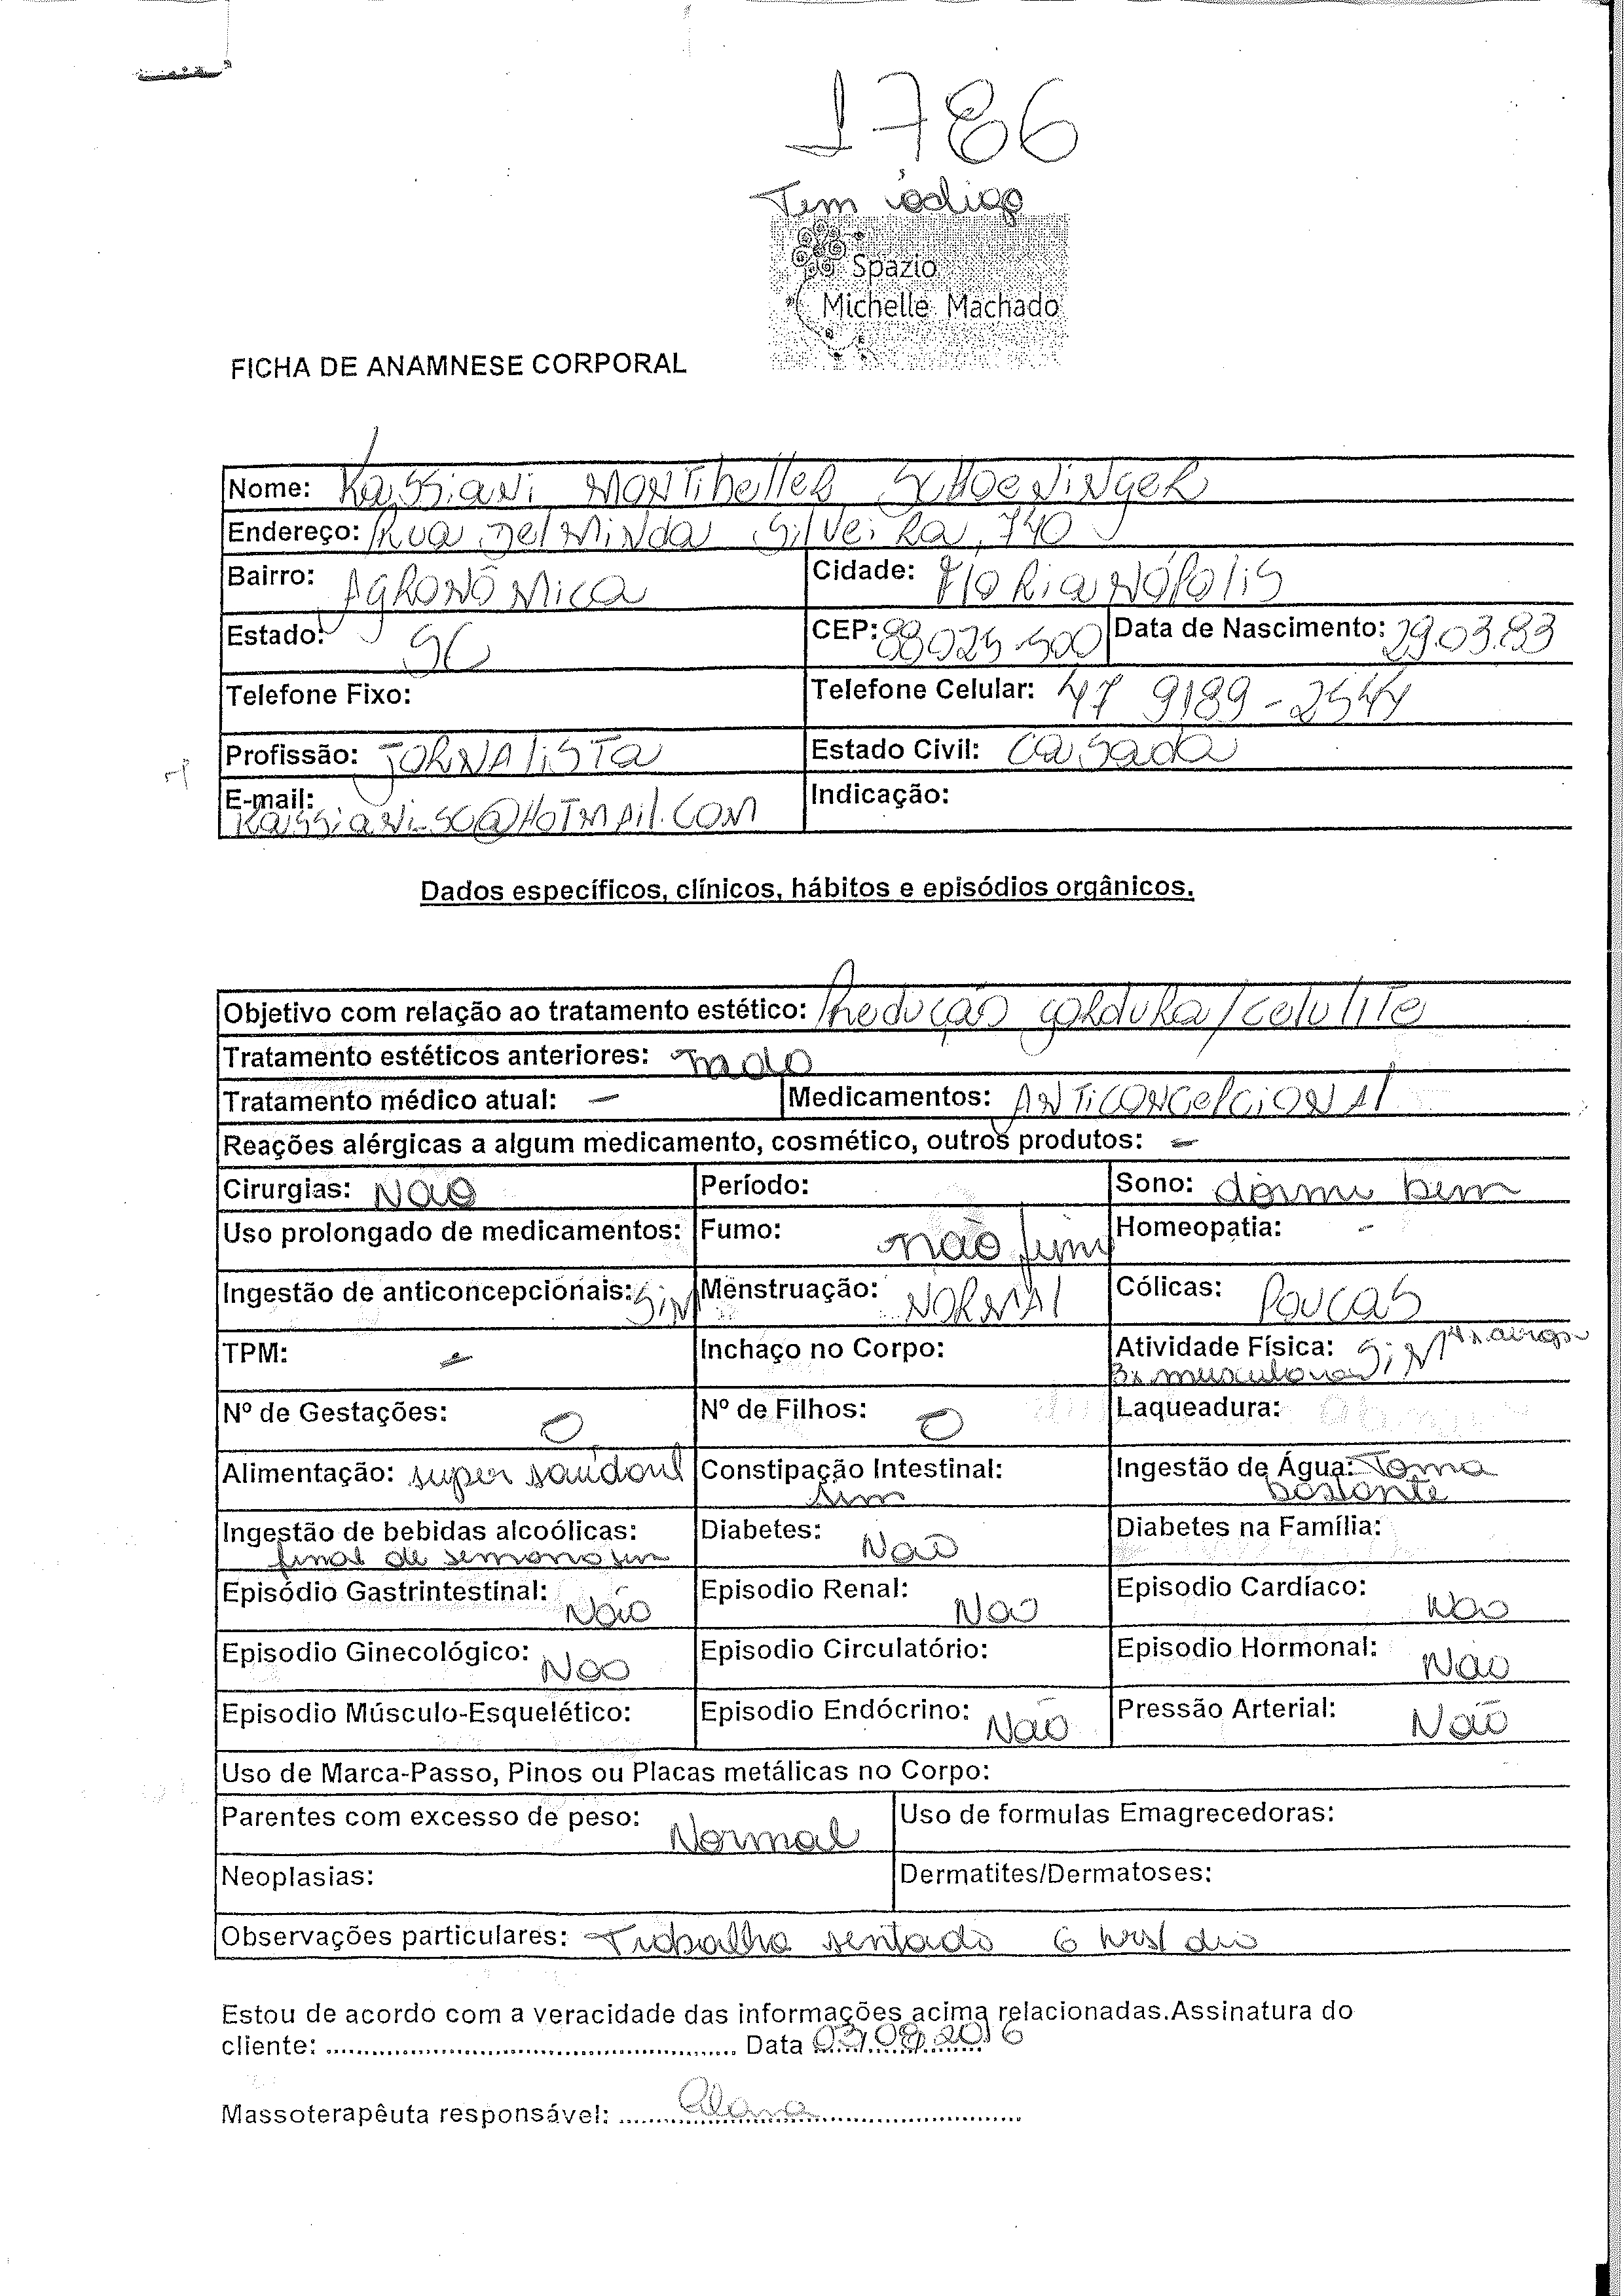 1786
Tem código
Spazio
Michelle Machado
FICHA DE ANAMNESE CORPORAL
Nome: Kassiani Montibeller Schoeninger
Endereço: Rua Delminda Silveira, 740
Bairro: Agronômica Cidade: Florianópolis
Estado: SC CEP: 88025-500 Data de Nascimento: 29.03.83
Telefone Fixo: Telefone Celular: 47 9189-2544
Profissão: Jornalista Estado Civil: Casada
E-mail: Indicação:
Kassiani-sc@hotmail.com
Dados específicos, clínicos, hábitos e episódios orgânicos.
Objetivo com relação ao tratamento estético: Redução gordura/celulite
Tratamento estéticos anteriores:
Tratamento médico atual: — Medicamentos: Anticoncepcional
Reações alérgicas a algum medicamento, cosmético, outros produtos: —
Cirurgias: Não Período: Sono: dormi bem
Uso prolongado de medicamentos: Fumo: não fum Homeopatia: -
Ingestão de anticoncepcionais: Sim Menstruação: Normal Cólicas: Poucas
TPM: - Inchaço no Corpo: Atividade Física: Sim
3x
Nº de Gestações: 0 Nº de Filhos: 0 Laqueadura:
Alimentação: super saudavl Constipação Intestinal: Ingestão de Água: Toma
sim bastante
Ingestão de bebidas alcoólicas: Diabetes: Não Diabetes na Família:
final de semana sim
Episódio Gastrintestinal: Não Episodio Renal: Não Episodio Cardíaco: Não
Episodio Ginecológico: Não Episodio Circulatório: Episodio Hormonal: Não
Episodio Músculo-Esquelético: Episodio Endócrino: Não Pressão Arterial: Não
Uso de Marca-Passo, Pinos ou Placas metálicas no Corpo:
Parentes com excesso de peso: Normal Uso de formulas Emagrecedoras:
Neoplasias: Dermatites/Dermatoses:
Observações particulares: Trabalha sentado 6 hrs/ dia
Estou de acordo com a veracidade das informações acima relacionadas.Assinatura do
cliente: ........................................................ Data 03/08/2016
Massoterapêuta responsável: ..........Alana..............................